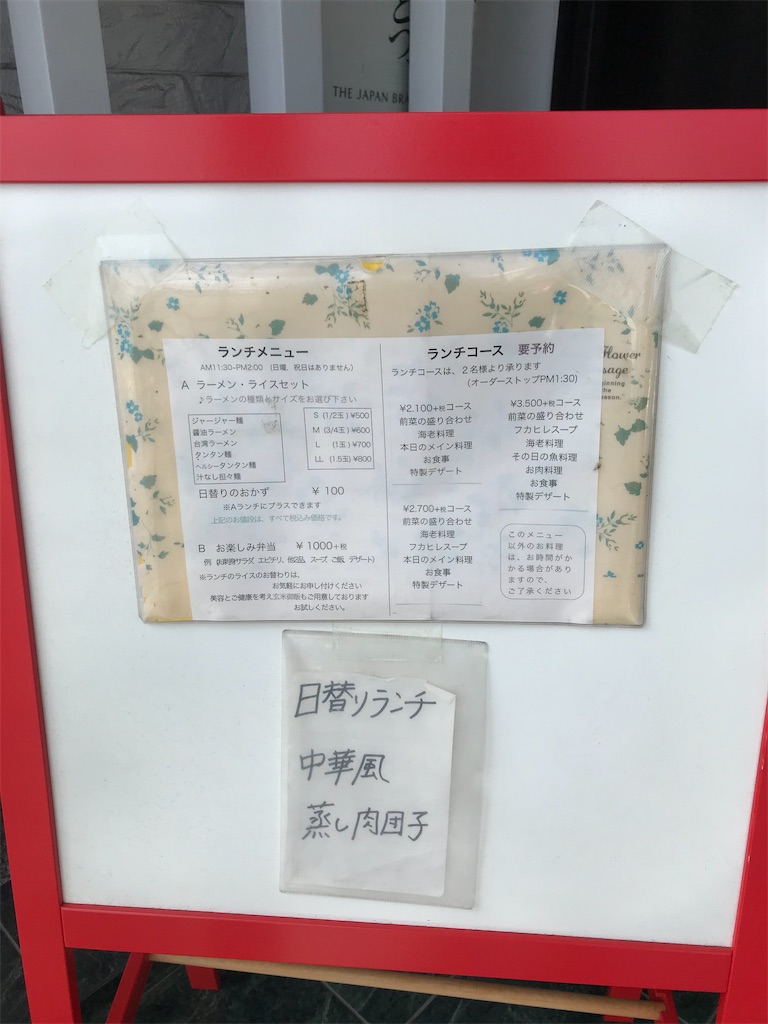 THE JAPAN BRA
ランチメニュー
AM11:30~PM2:00 (日曜、祝日はありません)
A ラーメン・ライスセット
♪ラーメンの種類とサイズをお選び下さい
ジャージャー麺
醤油ラーメン
台湾ラーメン
タンタン麺
ヘルシータンタン麺
汁なし担々麺
S (1/2玉) ¥500
M (3/4玉) ¥600
L (1玉) ¥700
LL (1.5玉) ¥800
日替りのおかず ¥ 100
※Aランチにプラスできます
上記のお値段は、すべて税込み価格です。
B お楽しみ弁当 ¥ 1000+税
例 (お刺身サラダ エビチリ、他2品、スープ、ご飯、デザート)
※ランチのライスのお替わりは、
お気軽にお申し付けください
美容とご健康を考え玄米御飯もご用意しております
お試しください。
ランチコース 要予約
ランチコースは、2名様より承ります
(オーダーストップPM1:30)
¥2.100+税コース
前菜の盛り合わせ
海老料理
本日のメイン料理
お食事
特製デザート
¥2.700+税コース
前菜の盛り合わせ
海老料理
フカヒレスープ
本日のメイン料理
お食事
特製デザート
¥3.500+税コース
前菜の盛り合わせ
フカヒレスープ
海老料理
その日の魚料理
お肉料理
お食事
特製デザート
このメニュー
以外のお料理
は、お時間がか
かる場合があり
ますので、
ご了承ください
Flower
sage
inning
the
eason.
日替りランチ
中華風
蒸し肉団子